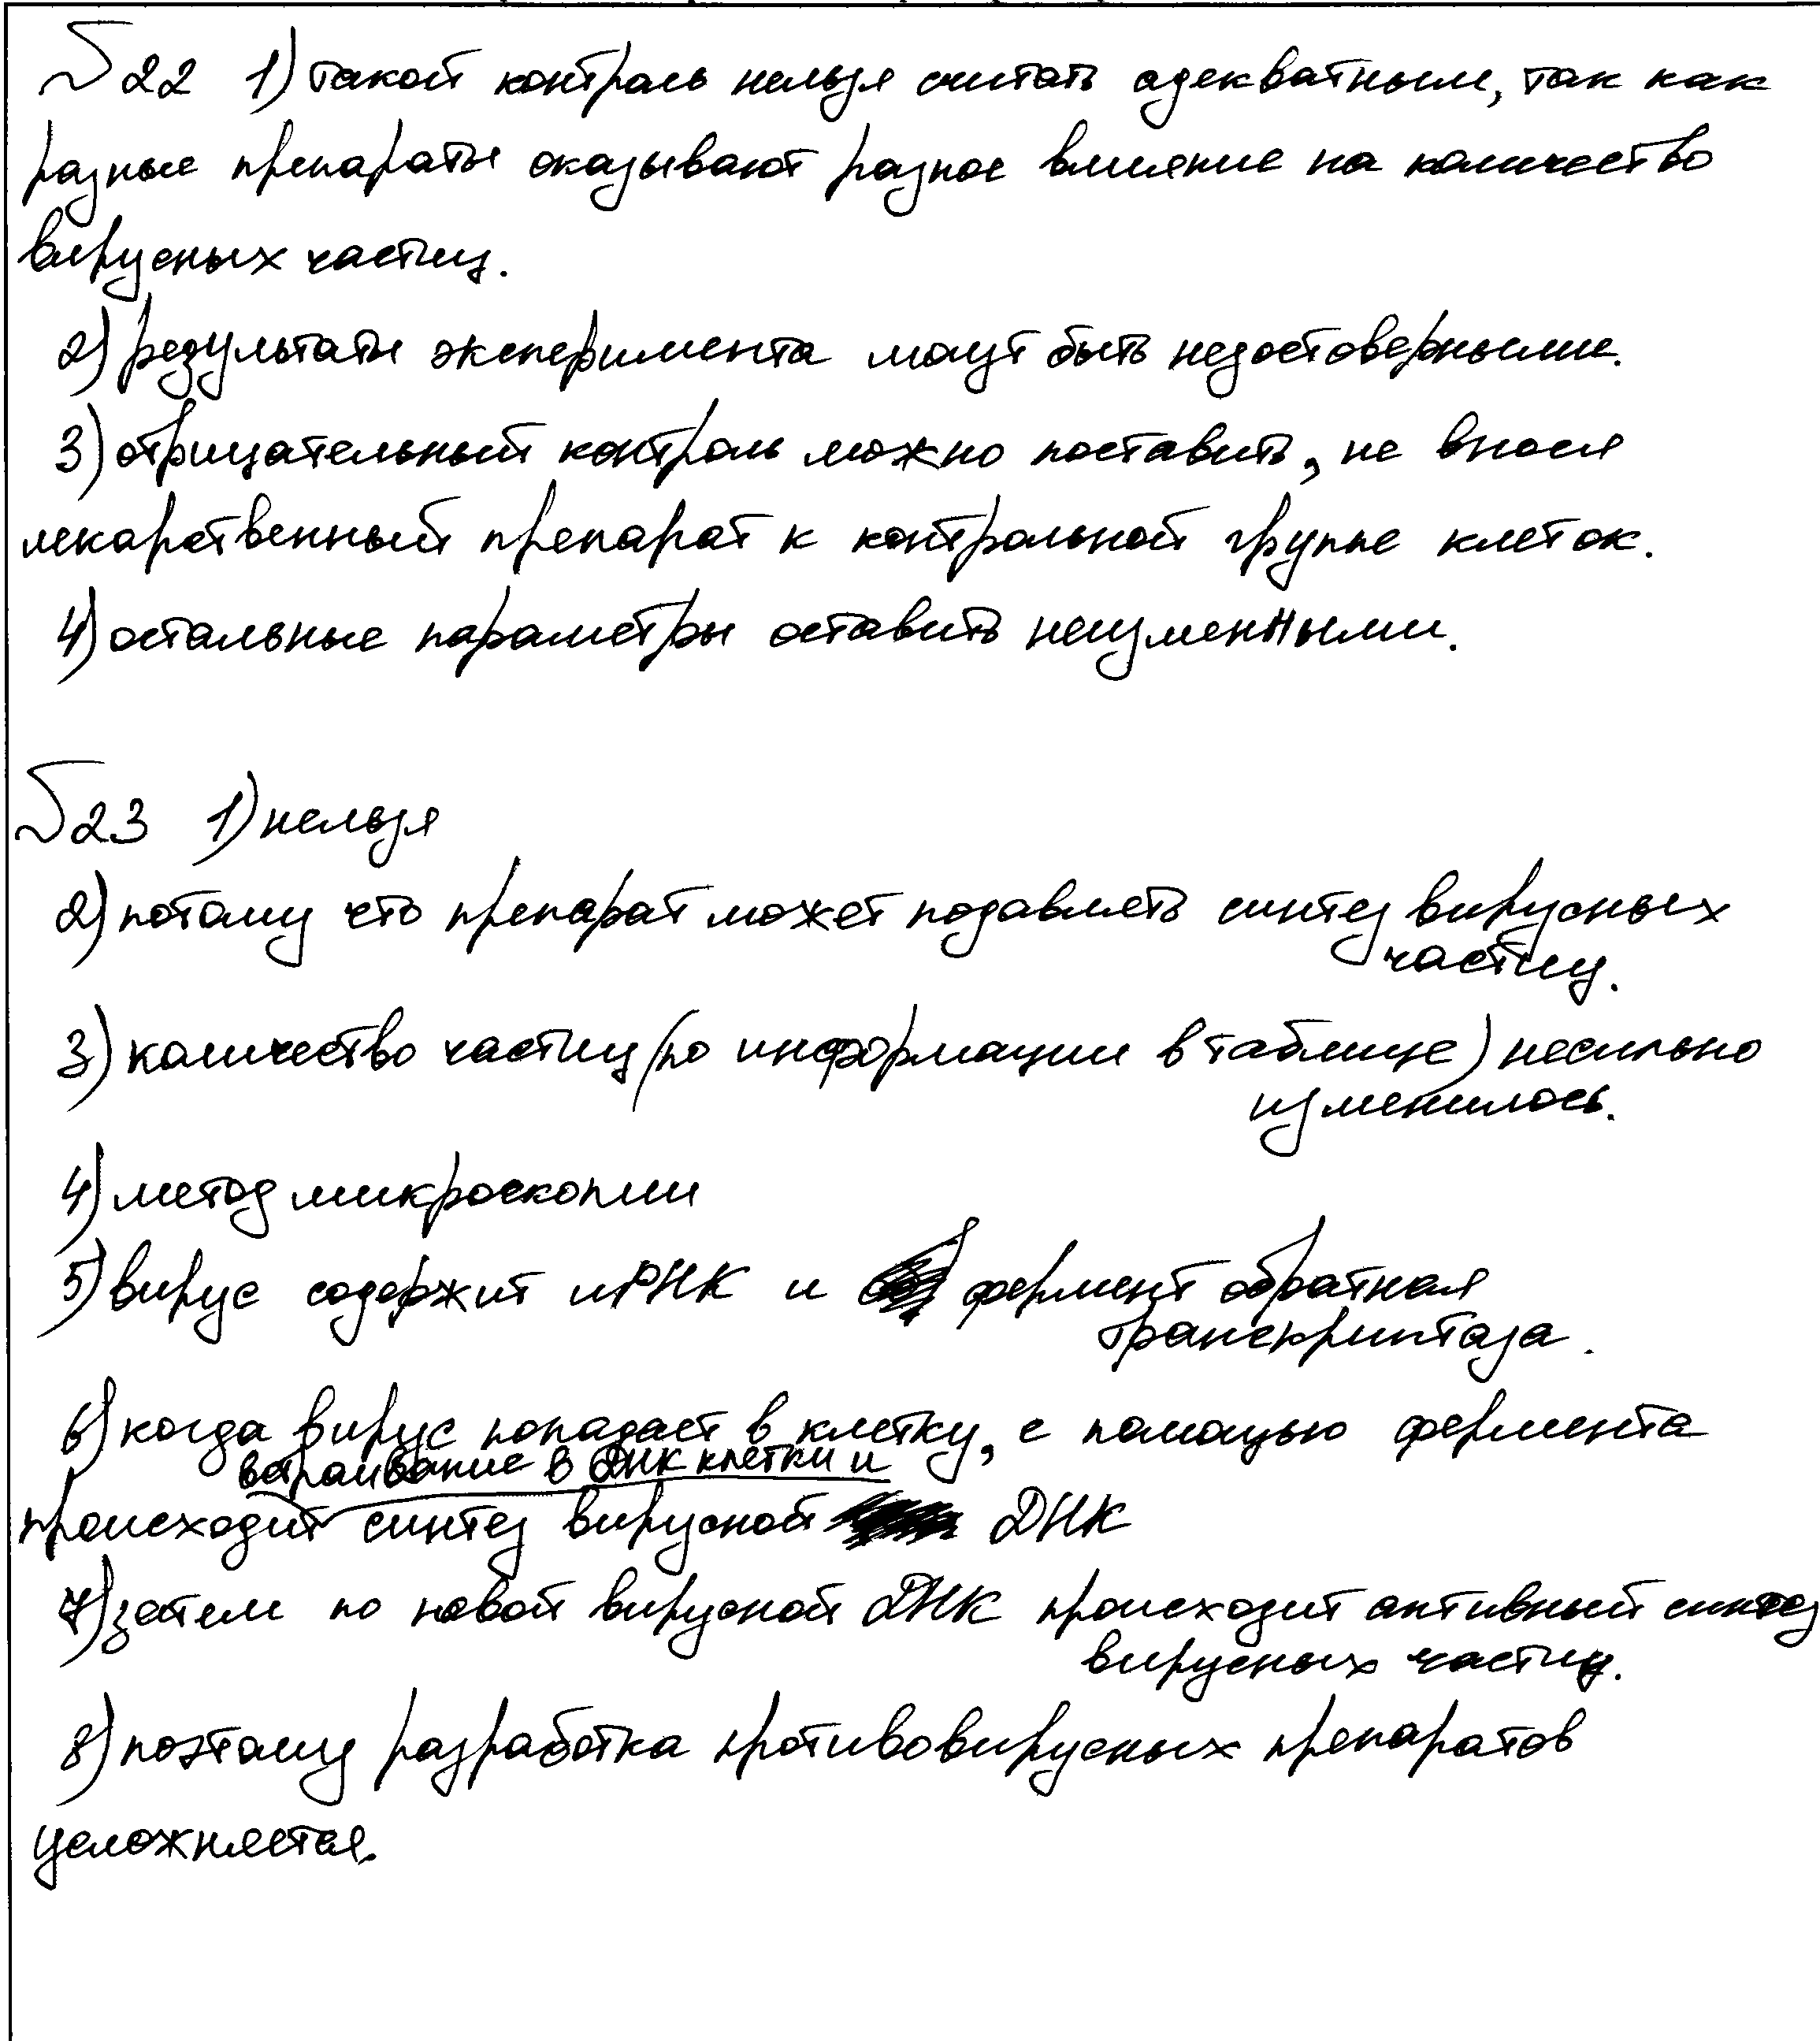 №22 1) такой контроль нельзя считать адекватным, так как
разные препараты оказывают разное влияние на количество
вирусных частиц.
2) результаты эксперимента могут быть недостоверными.
3) отрицательный контроль можно поставить, не внося
лекарственный препарат к контрольной группе клеток.
4) остальные параметры оставить неизменными.
№23 1) нельзя
2) потому что препарат может подавлять синтез вирусных
частиц.
3) количество частиц (по информации в таблице) несильно
изменилось.
4) метод микроскопии
5) вирус содержит иРНК и фермент обратная
транскриптаза.
6) когда вирус попадает в клетку, с помощью фермента
встраивание в ДНК клетки и
происходит синтез вирусной ДНК
7) затем по новой вирусной ДНК происходит активный синтез
вирусных частиц.
8) поэтому разработка противовирусных препаратов
усложняется.